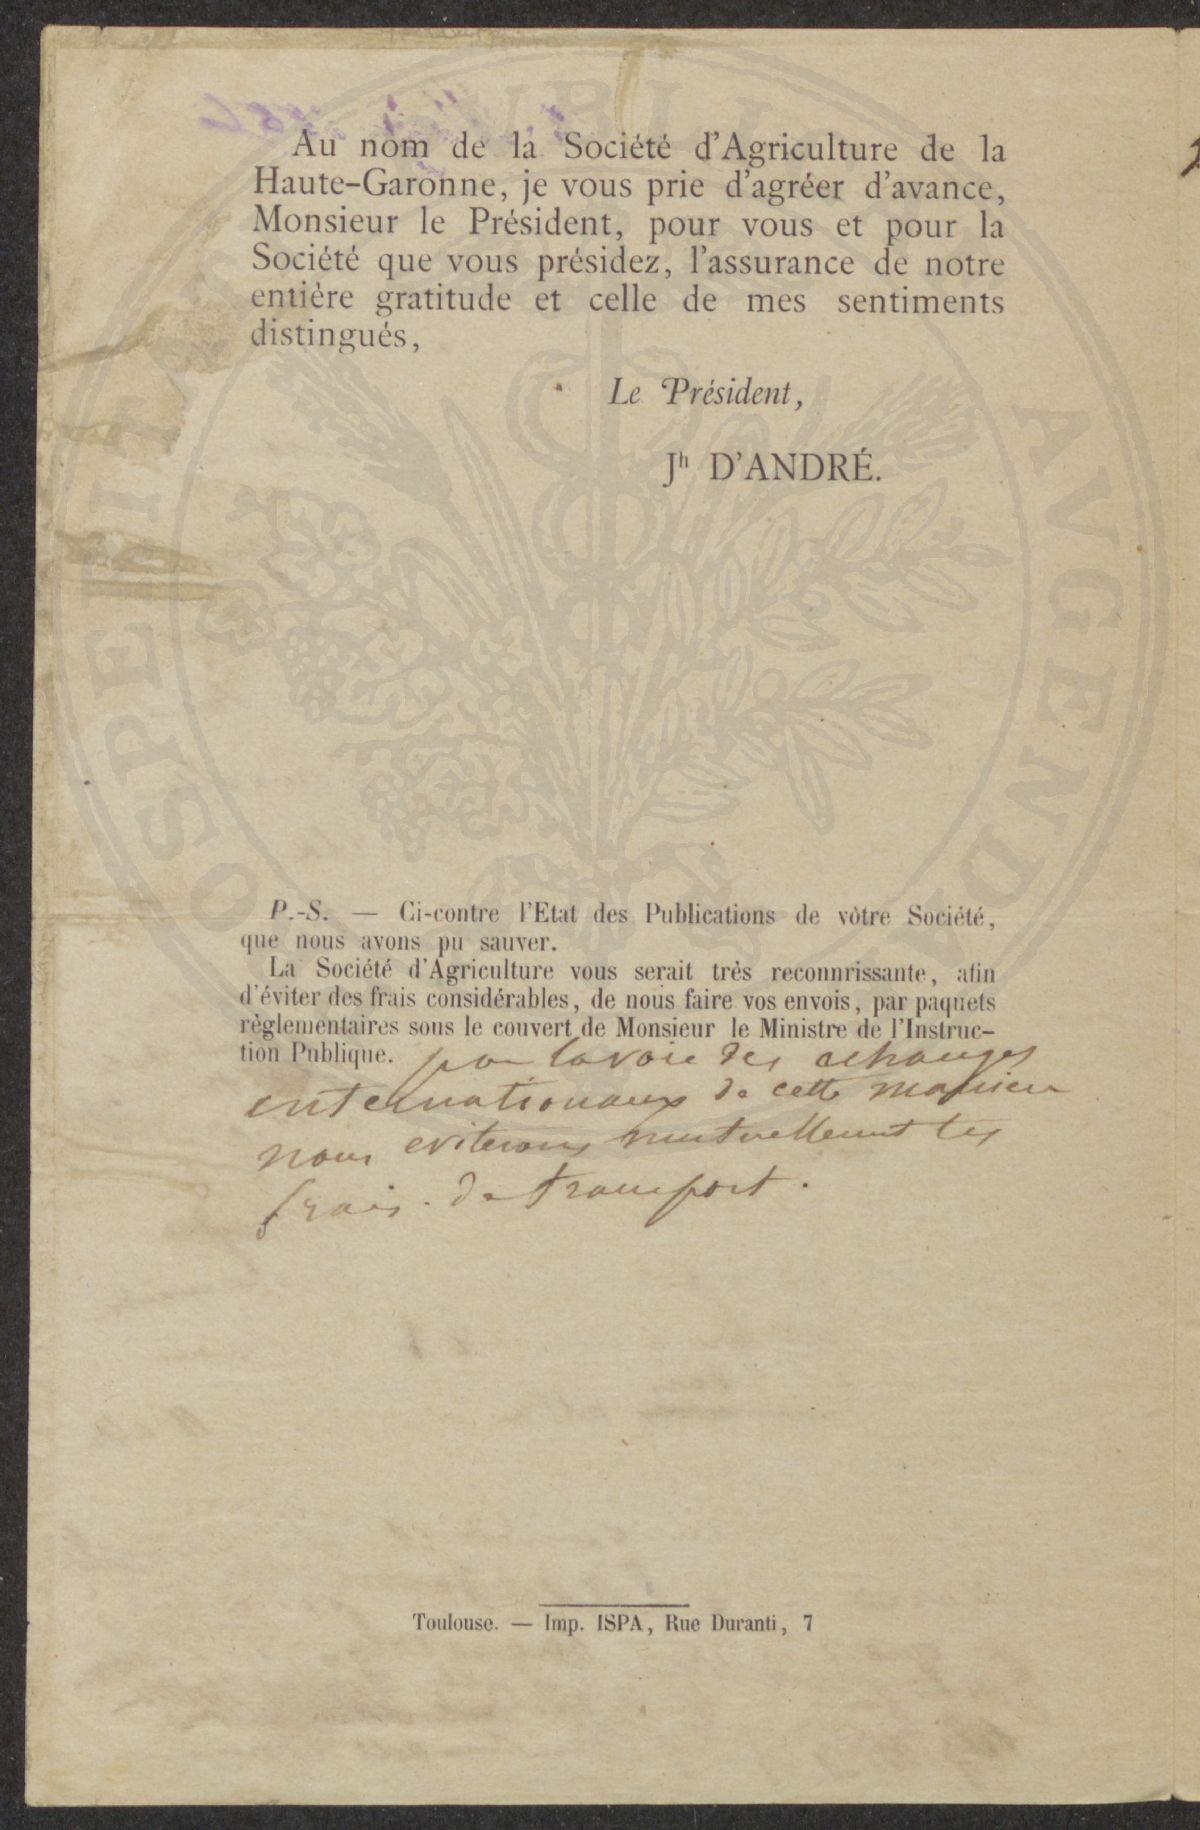 Au nom de la Société d'Agriculture de la
Haute-Garonne, je vous prie d'agréer d'avance,
Monsieur le Président, pour vous et pour la
Société que vous présidez, l'assurance de notre
entière gratitude et celle de mes sentiments
distingués,
Le Président,
Jh D'ANDRÉ.
P.-S. — Ci-contre l'Etat des Publications de vòtre Société,
que nous avons pu sauver.
La Société d'Agriculture vous serait très reconnrissante, afin
d'éviter des frais considérables, de nous faire vos envois, par paquets
règlementaires sous le couvert de Monsieur le Ministre de l'Instruc-
tion Publique. par la voie des echanges
internationaux de cette maniere
nous eviterons mutuellement les
frais de transport.
Toulouse. — Imp. ISPA, Rue Duranti, 7